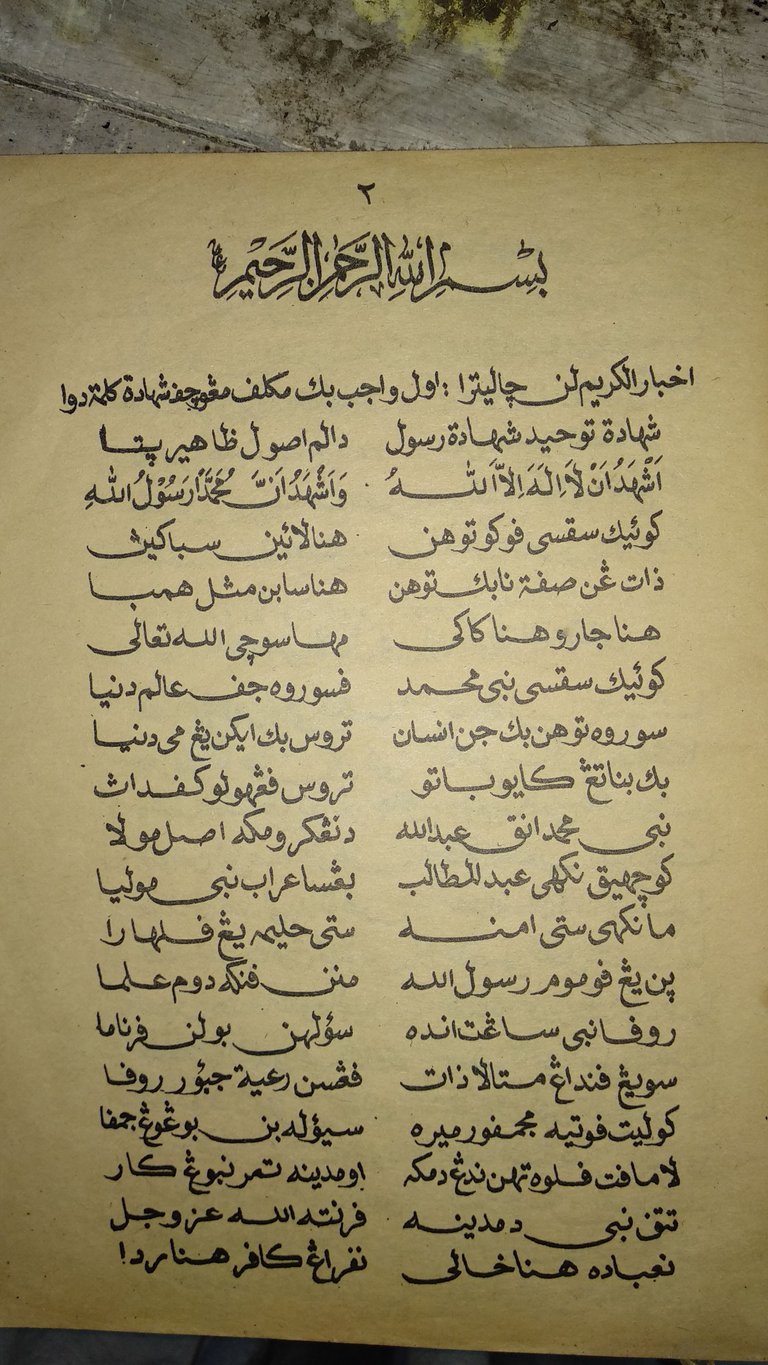 ٢
بِسْمِ اللهِ الرَّحْمٰنِ الرَّحِيْمِ
اخبار الكريم لن چاليترا : اول واجب بك مكلف مڠوچف شهادة كلمة دوا
شهادة توحيد شهادة رسول دالم اصول ظاهير پتا
اَشْهَدُ اَنْ لَا اِلٰهَ اِلاَّ اللهُ وَاَشْهَدُ اَنَّ مُحَمَّدًا رَسُوْلُ اللهِ
كوئيك سقسى فوكو توهن هنا لائين سباكيڽ
ذات ڠن صفة نابك توهن هنا سابن مثل همبا
هنا جارو هنا كاكى مها سوچى الله تعالى
كوئيك سقسى نبى محمد فسوروه جف عالم دنيا
سوروه توهن بك جن انسان تروس بك ايكن يڠ مى دنيا
بك بناتڠ كايو باتو تروس فڠهولو كفداڽ
نبى محمد انق عبدالله دنڠكرو مكه اصل مولا
كوچهيق نكهى عبد للمطالب بڠسا عراب نبى موليا
ما نكهى ستى امنه ستى حليمه يڠ فلهارا
پن يڠ فوموم رسول الله منن فنكه دوم علما
روفا نبى ساڠت انده سؤلهن بولن فرناما
سويڠ فنداڠ متالا ذات فڠسن رعية جبؤر روفا
كوليت فوتيه مجمفور ميره سيؤله بن بوڠوڠ جمفا
لامافت فلوه تهن ندڠ دمكه او مدينه تمر نبوڠ كار
تتف نبى دمدينه فرنته الله عز وجل
نعباده هنا خالى نفراڠ كافر هنا مردا